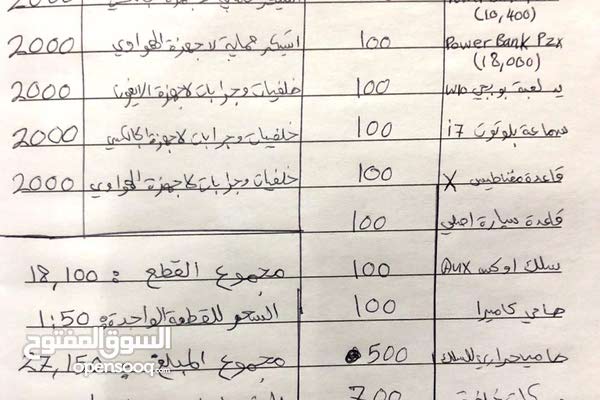 (10,400)
Power Bank Pzx 100 استيكر حماية لاجهزة الهواوي 2000
(18,000)
يد لعبة بوبجي W10 100 خلفيات وجرابات لاجهزة الايفون 2000
سماعة بلوتوث i7 100 خلفيات وجرابات لاجهزة جالكسي 2000
قاعدة مغناطيس X 100 خلفيات وجرابات لاجهزة الهواوي 2000
قاعدة سيارة اصلي 100
سلك اوكس AUX 100 مجموع القطع : 18,100
حامي كاميرا 100 السعر للقطعة الواحدة : 1:50
حاميحراري للسلك 500 مجموع المبلغ : 27,150
700
السوق المفتوح
opensooq.com